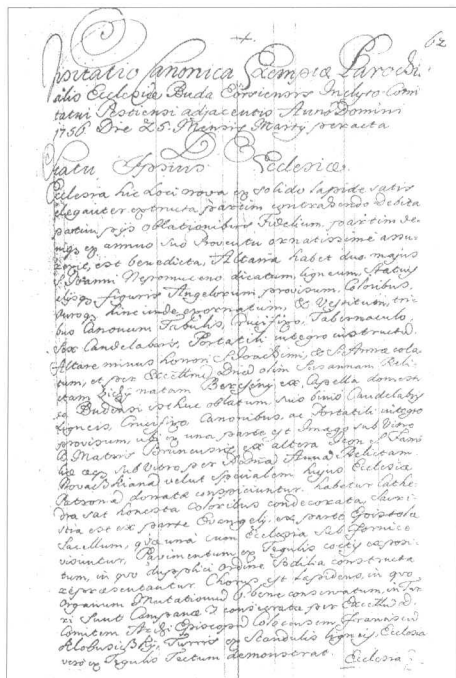 62
Visitatio Canonica Exemptæ Parochi-
alis Ecclesiæ Buda Eörsiensis Inclyto Comi-
tatui Pestiensi adjacentis Anno Domini
1756 Die 25 Mensis Martÿ peracta
Statu Ipsius Ecclesiæ
Ecclesia hic Loci nova ex solido lapide satis
eleganter extructa partim contrahendo debita
partim pÿs oblationibus Fidelium, partim de-
ex annuo suo Proventu ornatissime
est benedicta, Altaria habet duo, majus
S. Joanni Nepomuceno dicatum, ligneum, statuis
figuris Angelorum provisum, Coloribus,
hinc inde exornatum, & Vestitum, tri-
bus Canonum Tabulis, Crucifixo, Tabernaculo,
Sex Candelabris, Portatili integro instructum.
Altare minus honori S. Joachimi, & S. Annæ
tum, et per Excellmam Dnam olim Susannam Reli-
ctam natam Bercsény ex Capella domesti-
ca Budensi isthuc oblatum suis binis Candelabris
ligneis, Crucifixo Canonibus ac Portatili integro
provisum, ubi ex una parte est Imago sub Vitro
B. Matris ex altera
sub Vitro per Annam Relictam
velut specialem hujus Ecclesiæ
Patronam donatæ conspiciuntur. habetur Cathe-
dra sat honesta coloribus condecorata, Sacri-
stia est ex parte Evangelÿ, ex parte Epistolæ
Sacellum, quæ una cum Ecclesia sub fornice
visuntur. Pavimentum ex Tegulis coctis exposi-
tum, in quo duplici ordine Sedilia constructa
repræsentantur. Chorus est lapideus, in quo
Organum Mutationum 9 bene conservatum, in Tur-
ri Sunt Campanæ 3 consecratæ per Excellmum D.
Comitem Archi Episcopum Colocensem Franciscum
Klobusiczky. Turris ex Scandulis ligneis, Ecclesia
vero ex Tegulis Tectum demonstrat.
Ecclesia